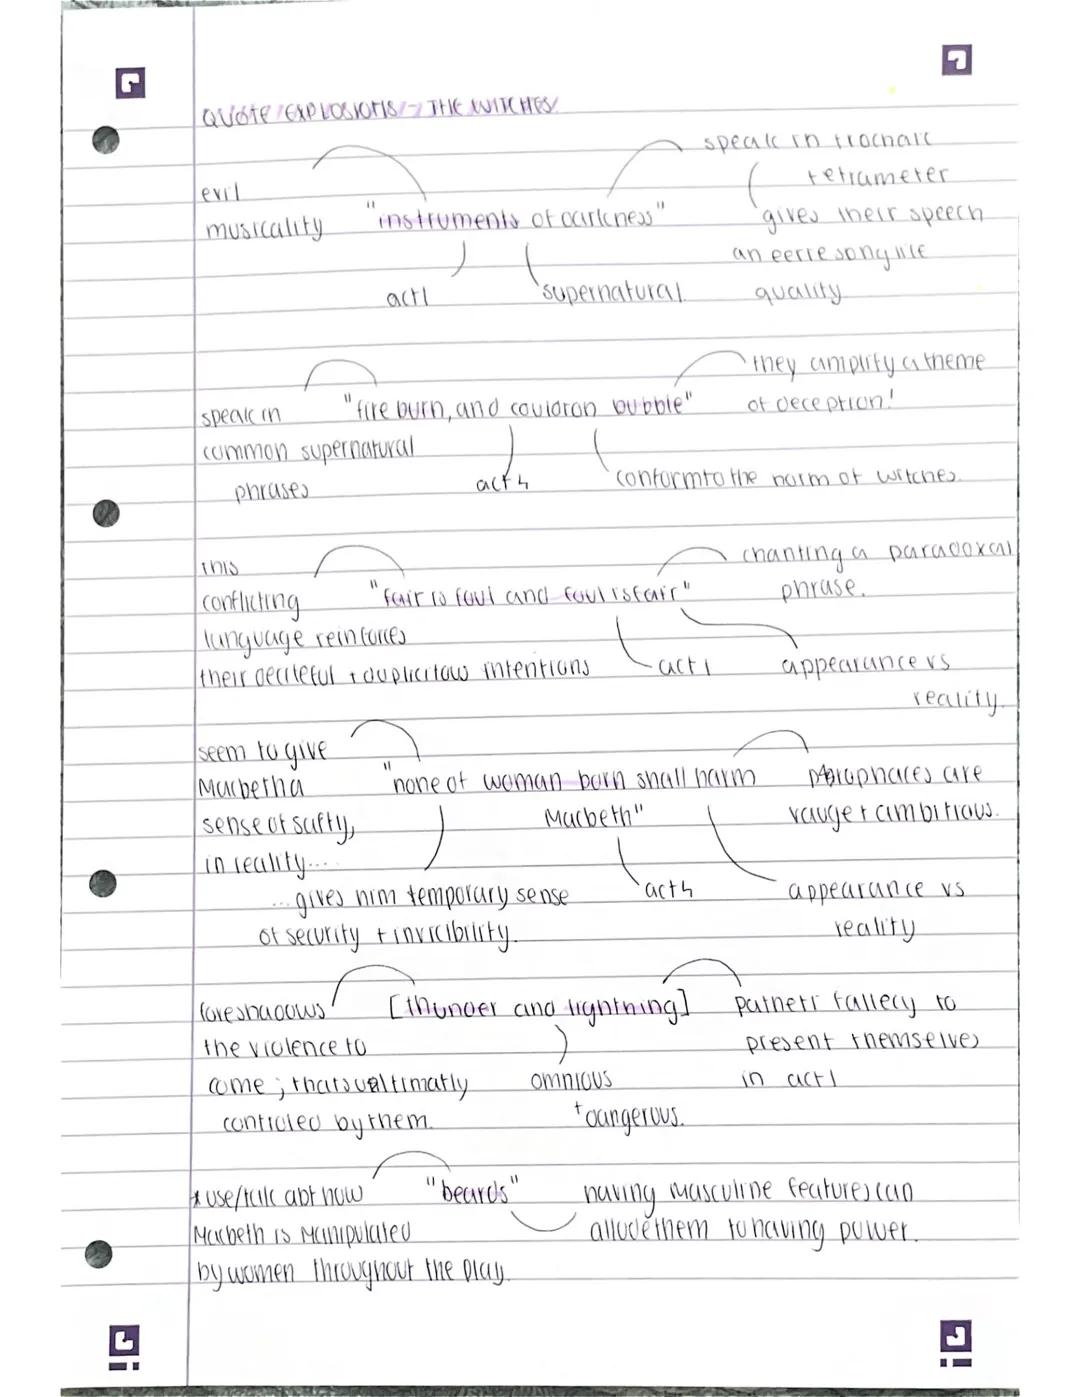 QUOTE EXPLOSIONS → THE WITCHES
speak in trochaic
tetrameter
gives their speech
an eerie songlike
quality
evil
musicality
"instruments of darkness"
act1
supernatural
they amplify a theme
of deception!
speak in
common supernatural
phrases
"fire burn, and couldron bubble"
act 4
conform to the norm of witches.
chanting a paradoxal
phrase.
this
conflicting
language reinforces
their deciteful + duplicitous intentions
"fair is foul and foul is fair"
act 1
appearance vs
reality.
seem to give
Macbeth a
sense of safty,
in reality....
...gives him temporary sense
of security + invicibility.
"none of woman born shall harm
Macbeth"
act 4
prophaces are
vauge + ambitious.
appearance vs
reality
foreshadows
the violence to
come; thats ultimatly
controled by them.
[thunder and lightning]
omnious
+ dangerous.
patheti fallecy to
present themselves
in act 1
* use/talk abt how
Macbeth is manipulated
by women throughout the play.
"beards"
having masculine features can
allude them to having power.